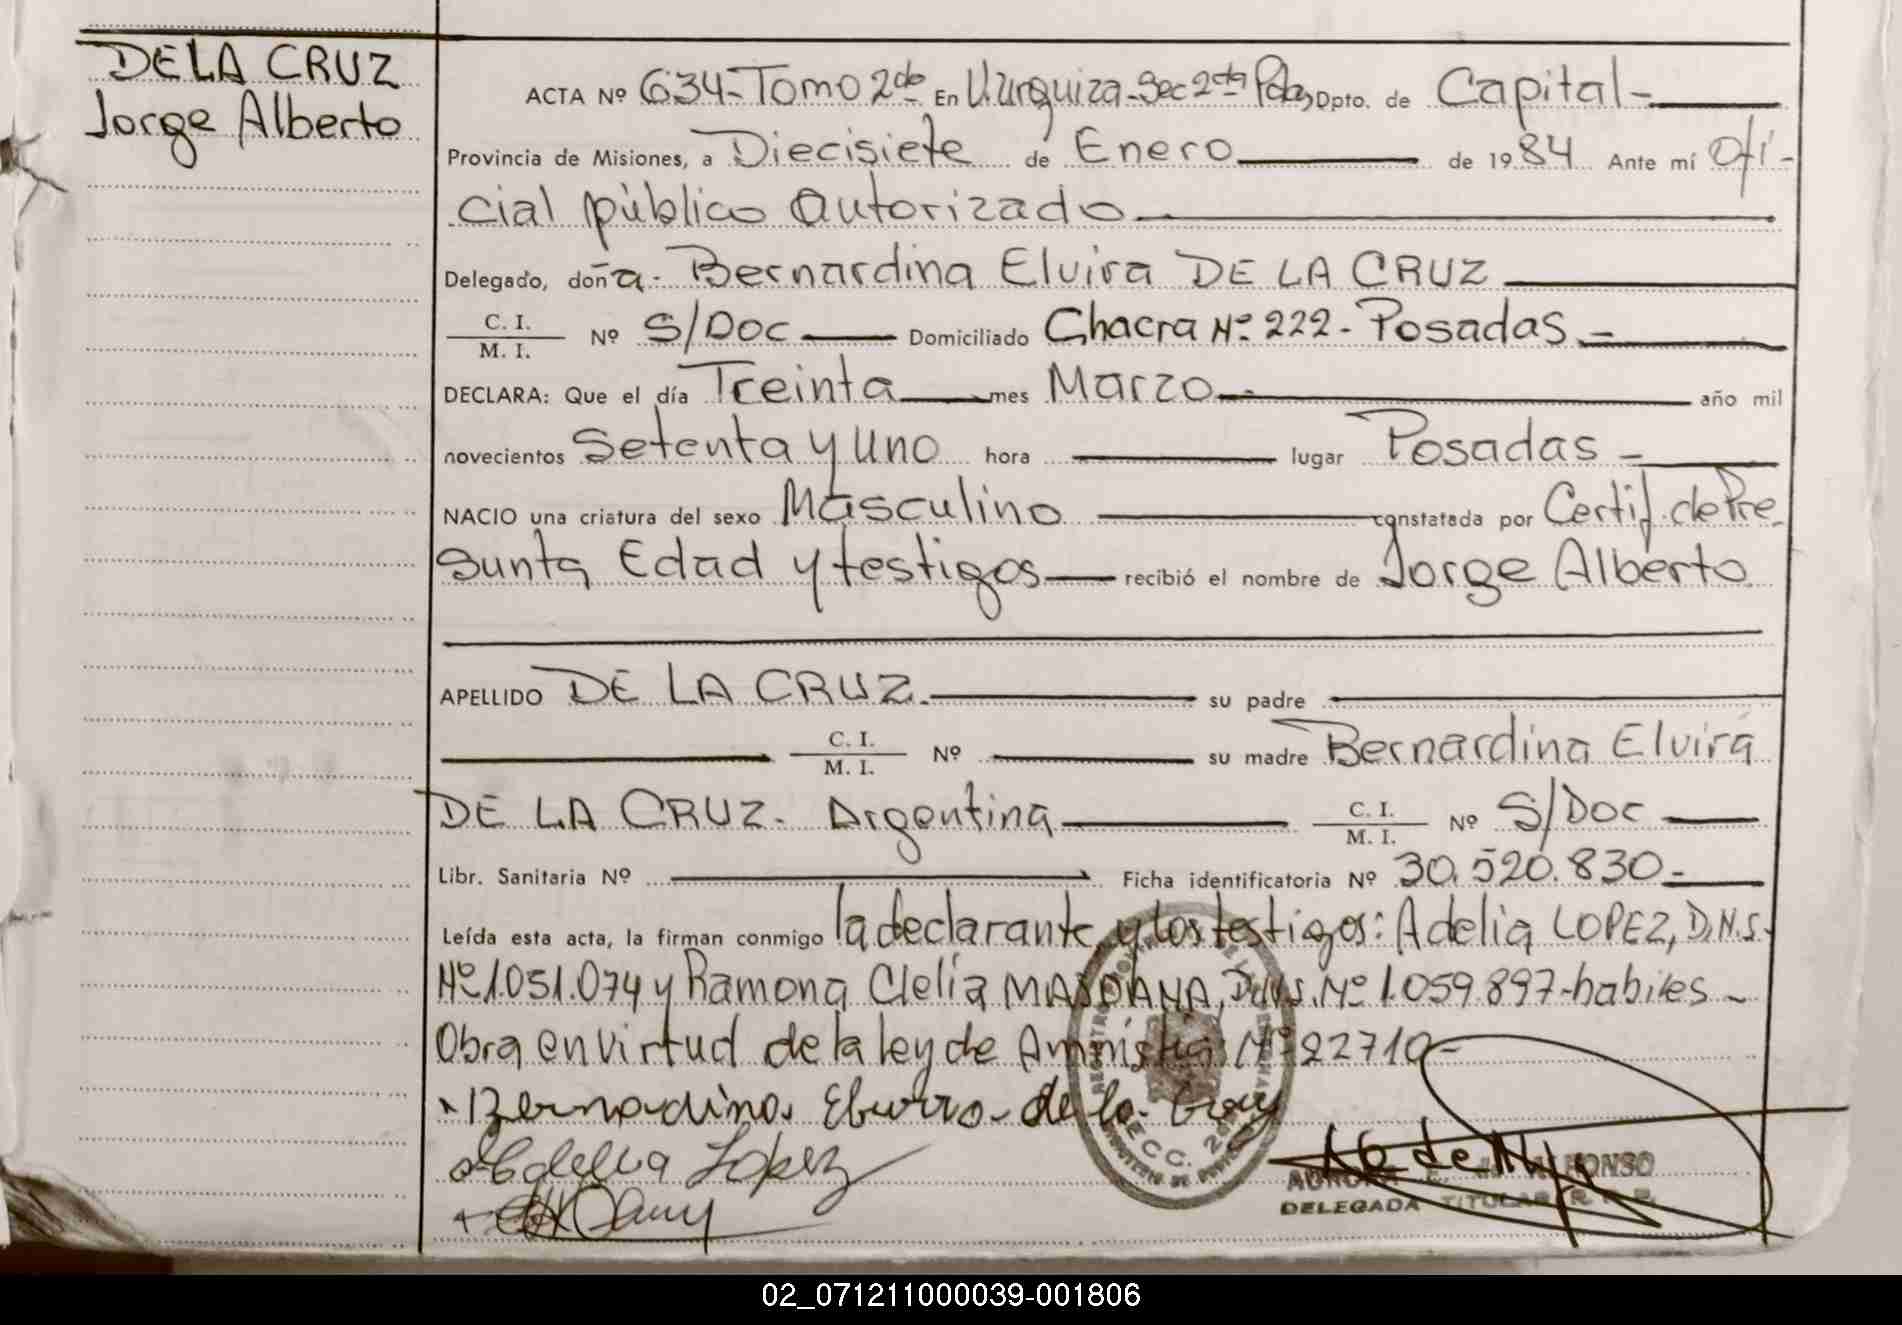 DE LA CRUZ
Jorge Alberto
ACTA Nº 634-Tomo 2do En V.Urquiza-Sec 2da Pdas, Dpto. de Capital-
Provincia de Misiones, a Diecisiete de Enero de 1984 Ante mí Ofi-
cial público autorizado
Delegado, doña- Bernardina Elvira DE LA CRUZ
C. I.
M. I. Nº S/Doc Domiciliado Chacra Nº 222- Posadas-
DECLARA: Que el día Treinta mes Marzo- año mil
novecientos Setenta y uno hora lugar Posadas-
NACIO una criatura del sexo Masculino constatada por Certif. de Pre
sunta Edad y testigos recibió el nombre de Jorge Alberto
APELLIDO DE LA CRUZ. su padre
C. I.
M. I. Nº su madre Bernardina Elvira
DE LA CRUZ- Argentina C. I.
M. I. Nº S/Doc
Libr. Sanitaria Nº Ficha identificatoria Nº 30.520.830-
Leída esta acta, la firman conmigo la declarante, y los testigos: Adelia LOPEZ, D.N.S.
Nº 1.051.074 y Ramona Clelia Nº 1.059.897-habiles-
Obra en virtud de la ley de Amnistia Nº 22710-
Bernardina de la Cruz
Adelia Lopez
DELEGADA TITULAR
02_071211000039-001806